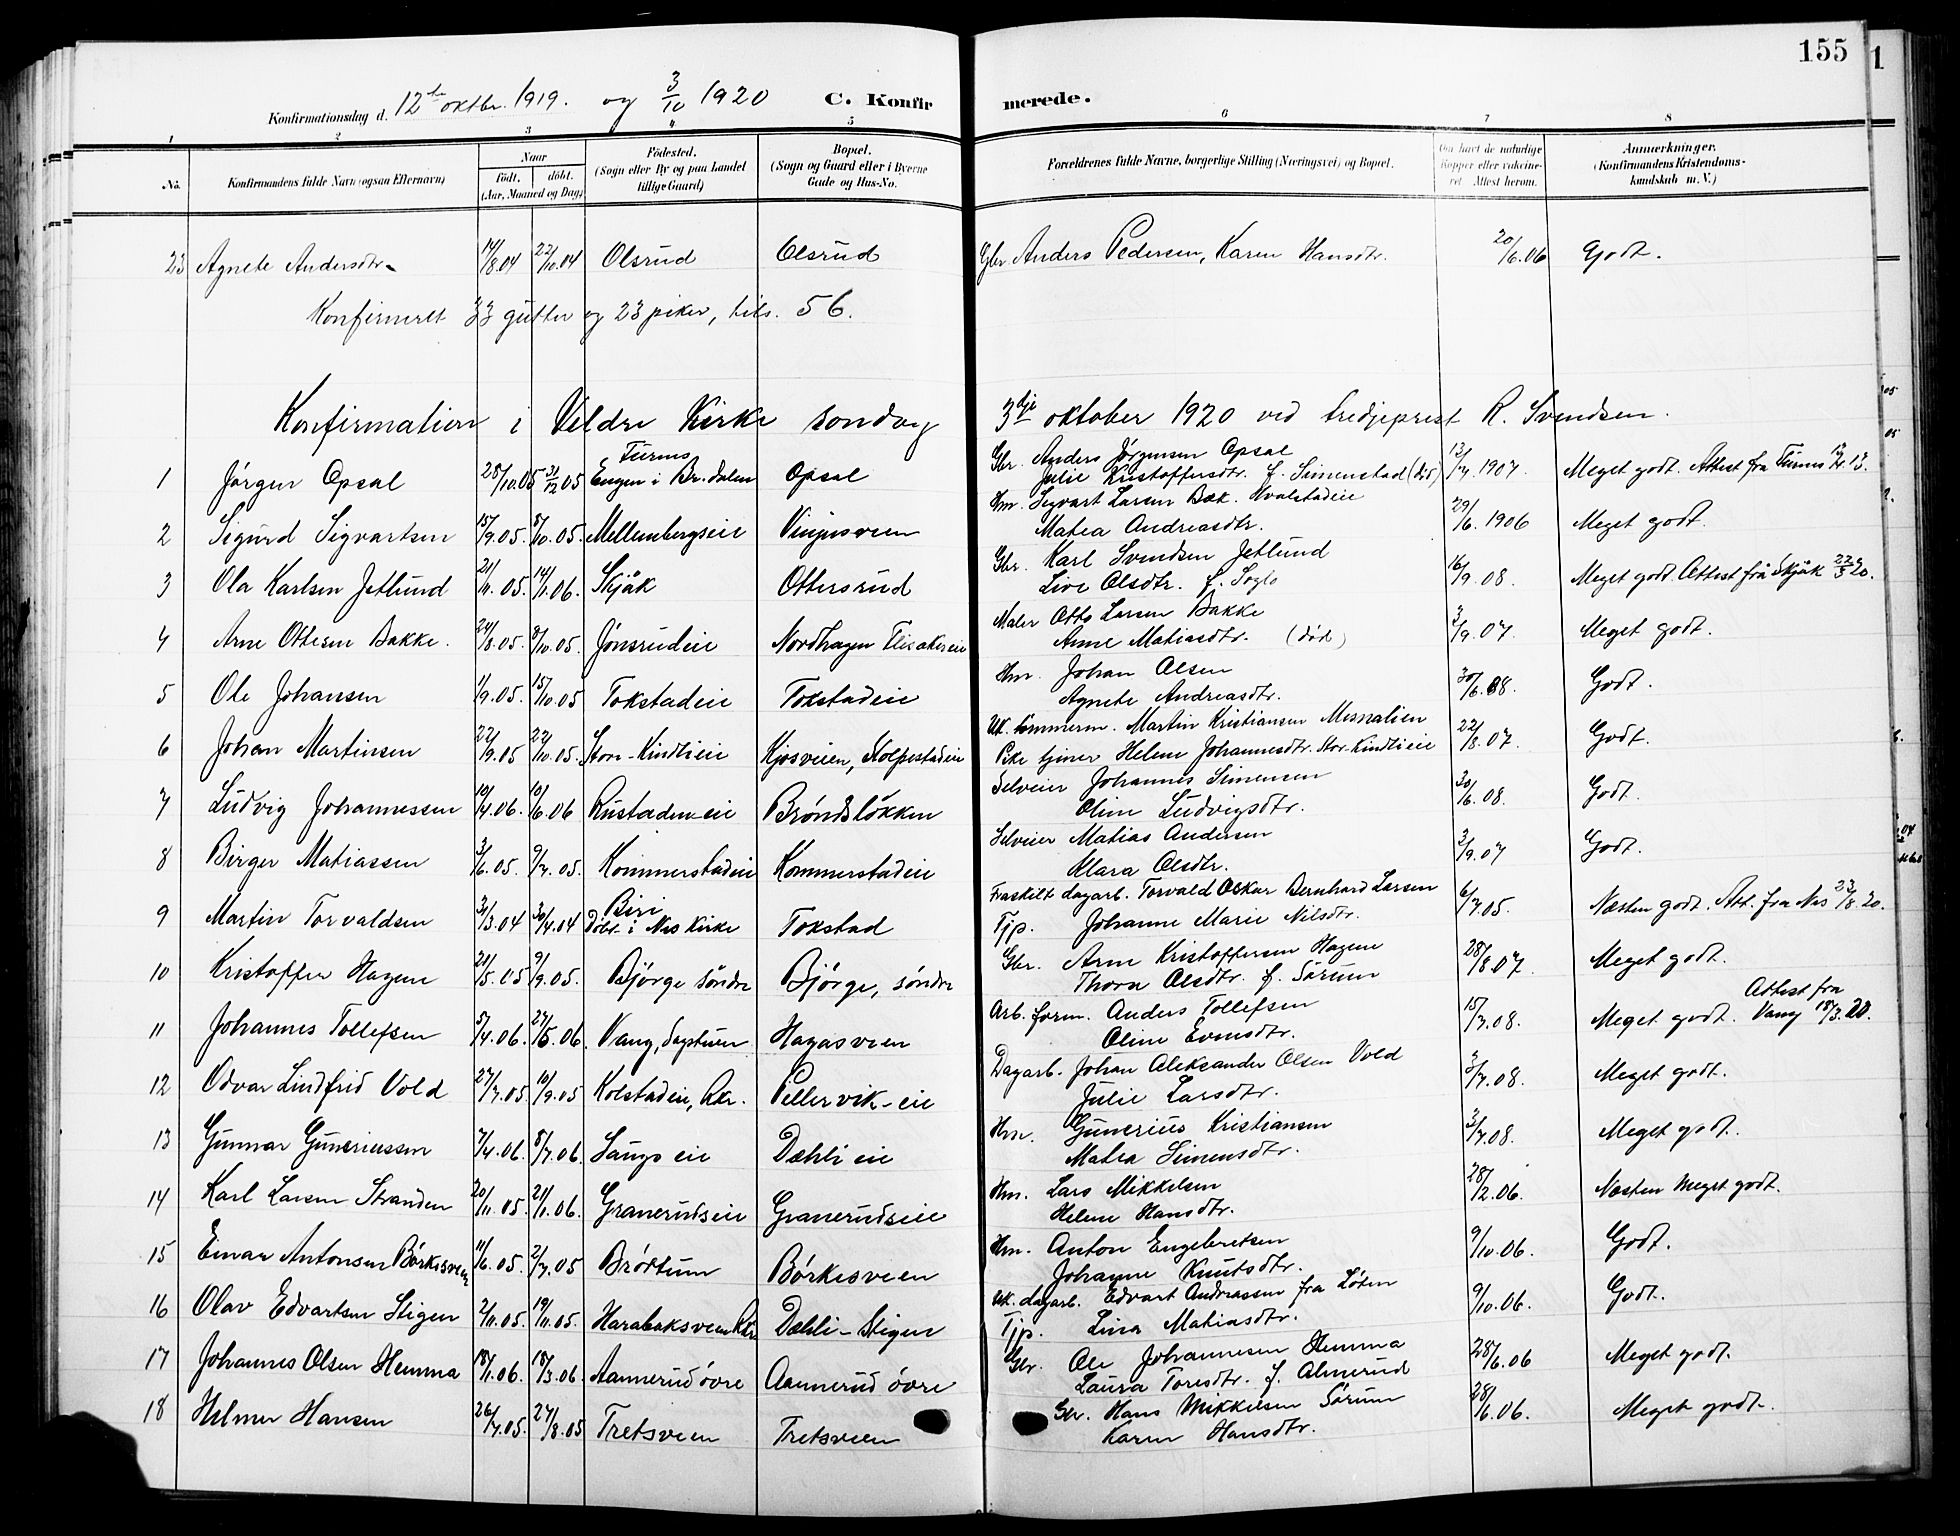 155
Konfirmationsdag d. 12te oktbr. 1919. og 3/10 1920 C. Konfirmerede.
1 2 3 4 5 6 7 8
No. Konfirmandens fulde Navn (ogsaa Efternavn) Naar Født. døbt. (Aar, Maaned og Dag) Fødested. (Sogn eller By og paa Landet tillige Gaard) Bopæl. (Sogn og Gaard eller i Byerne Gade og Hus-No. Forældrenes fulde Navne, borgerlige Stilling (Næringsvei) og Bopæl. Om havt de naturlige Kopper eller vakcineret. Attest herom. Anmærkninger. (Konfirmandens Kristendomskundskab m. V.)
23 Agnete Andersdtr. 14/8.04 22/10.04 Olsrud Olsrud Gbr. Anders Pedersen, Karen Hansdtr. 20/6.06 Godt.
Konfirmert 33 gutter og 23 piker, tils. 56.
Konfirmation i Veldre Kirke søndag 3dje oktober 1920 ved tredjeprest R. Svendsen.
1 Jørgen Opsal 28/10.05 31/12 05 Furnes Engen i Br.dalen Opsal Gbr. Anders Jørgensen Opsal 13/7.1907. Meget godt. Attest fra Furnes
Julie Kristoffersdtr. f. Simenstad (død)
2 Sigurd Sigvartsen 15/9.05. 8/10.05. Mellembergseie Vinjusveen Hm. Sigvart Larsen Bæk. Kvalstadeie 29/6.1906 Meget godt.
Matea Andreasdtr.
3 Ola Karlsen Jetlund 21/11.05. 14/1.06. Skjåk Ottersrud Gbr. Karl Svendsen Jetlund 16/9.08. Meget godt. Attest frå Skjåk 22/5 20.
Live Olsdtr. f.
4 Arne Ottesen Bakke. 24/8.05. 8/10.05. Jønsrudeie Nordhagen Flisakereie Maler Otto Larsen Bakke 3/9.07. Meget godt.
Anne Matiasdtr. (død)
5 Ole Johansen 1/9.05. 15/10.05 Tokstadeie Tokstadeie Hm. Johan Olsen 30/6.08. Godt.
Agnete Andreasdtr.
6 Johan Martinsen 22/9.05 22/10.05. Stor-Kindlieie Kjosveien, Kolpestadeie Uk. tømmerm. Martin Kristiansen Mesnalien 22/8.07. Godt.
Pke tjener Helene Johannesdtr. Stor-Kindlieie
7 Ludvig Johannessen 10/4.06. 10/6.06 Rustaden-eie Brøndsløkken Selveier Johannes Simensen 30/6.08. Godt.
Oline Ludvigsdtr.
8 Birger Matiassen 3/6.05. 9/7.05. Kommerstadeie Kommerstadeie Selveier Matias Andersen 3/9.07 Godt.
Klara Olsdtr.
9 Martin Torvaldsen 31/3.04 30/4.04 Biri Døbt i Nes Kirke Tokstad Fraskilt dagarb. Torvald Oskar Bernhard Larsen 6/7.05. Næsten godt. Att. fra Nes 23/8.20.
Tjp. Johanne Marie Nilsdtr.
10 Kristoffer Hagen 21/5.05 9/9.05. Bjørge søndre Bjørge, søndre Gbr. Arne Kristoffersen Hagen 28/8.07. Meget godt.
Thora Olsdtr. f. Sørum
11 Johannes Tollefsen 5/4.06. 27/5.06. Vang, Hagasveen Arb. form. Anders Tollefsen 15/7.08. Meget godt. Attest fra Vang 18/3.20.
Oline Evensdtr.
12 Odvar Lindfrid Vold 27/7.05. 10/9.05 Kolstadeie, Rkr. Pellervik-eie Dagarb. Johan Aleksander Olsen Vold 3/7.08. Meget godt.
Julie Larsdtr.
13 Gunnar Guneriussen 7/4.06. 8/7.06. Saugseie Dæhlieie Hm. Gunerius Kristiansen 3/7.08. Meget godt.
Matea Simensdtr.
14 Karl Larsen Stranden 20/11.05. 21/1.06. Granerudseie Granerudseie Hm. Lars Mikkelsen 28/2.06. Næsten meget godt.
Helene Hansdtr.
15 Einar Antonsen Børkesveen 11/6.05. 2/7.05 Brøttum Børkesveen Hm. Anton Engebretsen 9/10.06. Godt.
Johanne Knutsdtr.
16 Olav Edvartsen Stigen 2/11.05. 19/11.05. Harabaksveen Rkr. Dæhli-Stigen Uk. dagarb. Edvart Andreassen fra Løten 9/10.06. Godt.
Tjp. Lina Matiasdtr.
17 Johannes Olsen Hemma 18/1.06. 18/3.06. Aannerud øvre Aannerud øvre Gbr. Ole Johannesen Hemma 28/6.06 Meget godt.
Laura Toresdtr. f. Almerud
18 Helmer Hansen 26/7.05. 27/8.05 Tretsveen Tretsveen Gbr. Hans Mikkelsen Sørum 28/6.06. Meget godt.
Karen Hansdtr.